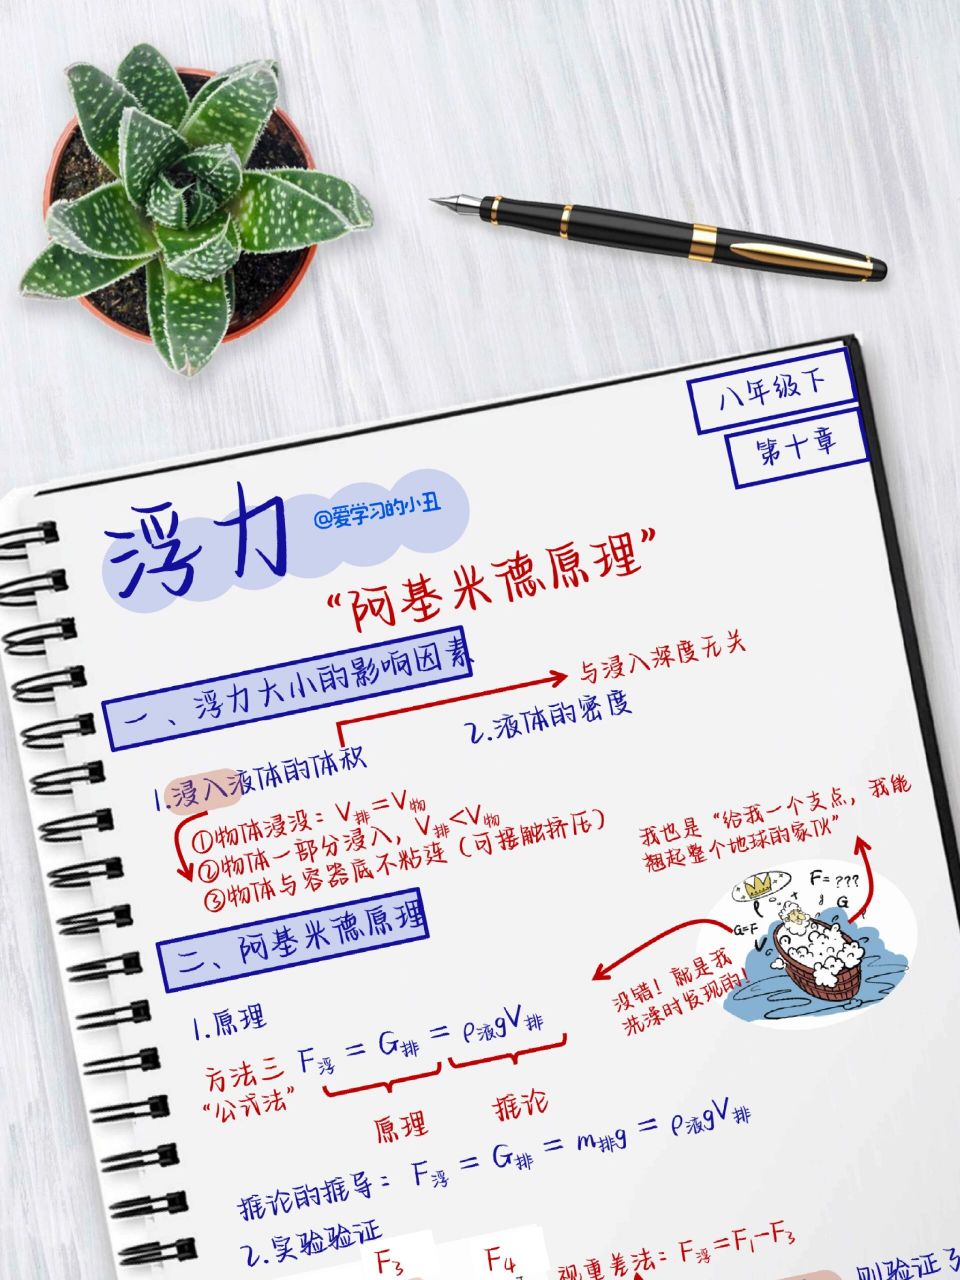 八年级下
第十章
浮力
@爱学习的小丑
“阿基米德原理”
一、浮力大小的影响因素
与浸入深度无关
1.浸入液体的体积
2.液体的密度
①物体浸没：V排=V物
②物体一部分浸入，V排<V物
③物体与容器底不粘连（可接触挤压）
我也是“给我一个支点，我能
翘起整个地球的家伙”
F=???
G
G=F
V
没错！就是我
洗澡时发现的！
二、阿基米德原理
1.原理
方法三
“公式法”
F浮=G排=ρ液gV排
原理
推论
推论的推导：F浮=G排=m排g=ρ液gV排
2.实验验证
F3
F4
视重差法：F浮=F1-F3
则验证了